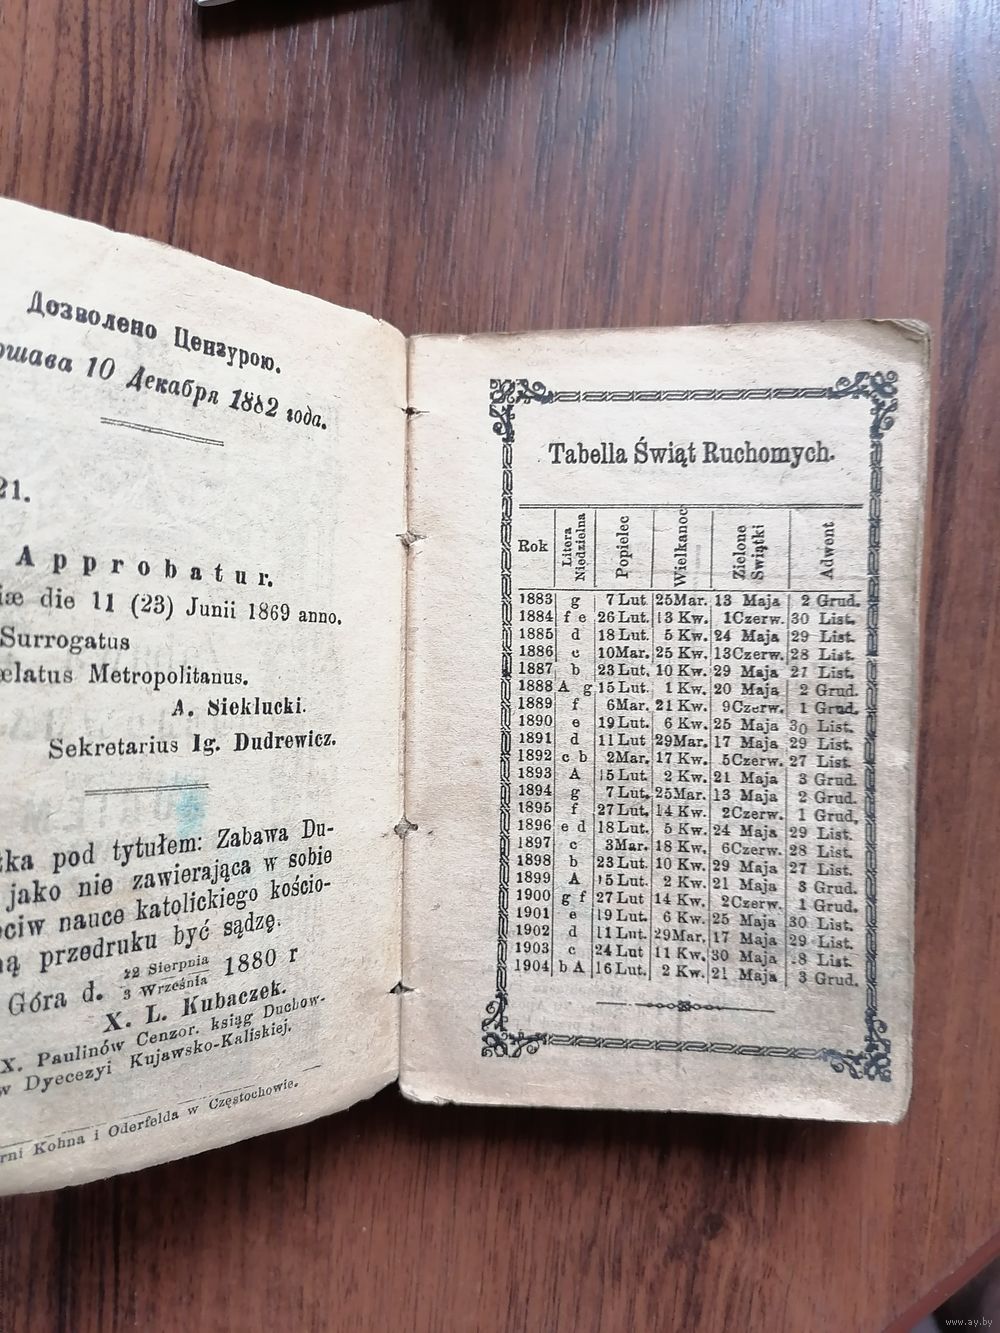 Дозволено Цензурою.
10 Декабря 1882 года.
21.
Approbatur.
die 11 (23) Junii 1869 anno.
Surrogatus
Metropolitanus.
A. Sieklucki.
Sekretarius Ig. Dudrewicz.
pod tytułem: Zabawa Du-
jako nie zawierająca w sobie
nauce katolickiego kościo-
przedruku być sądzę.
Góra d. 22 Sierpnia
3 Września 1880 r
X. L. Kubaczek.
X. Paulinów Cenzor. ksiąg Duchow-
w Dyecezyi Kujawsko-Kaliskiej.
Kohna i Oderfelda w Częstochowie.
Tabella Świąt Ruchomych.
Rok Litera Niedzielna Popielec Wielkanoc Zielone Świątki Adwent
1883 g 7 Lut 25Mar. 13 Maja 2 Grud.
1884 f e 26 Lut. 13 Kw. 1Czerw. 30 List.
1885 d 18 Lut. 5 Kw. 24 Maja 29 List.
1886 c 10Mar. 25 Kw. 13Czerw. 28 List.
1887 b 23 Lut. 10 Kw. 29 Maja 27 List.
1888 A g 15 Lut. 1 Kw. 20 Maja 2 Grud.
1889 f 6Mar. 21 Kw. 9Czerw. 1 Grud.
1890 e 19 Lut. 6 Kw. 25 Maja 30 List.
1891 d 11 Lut 29Mar. 17 Maja 29 List.
1892 c b 2Mar. 17 Kw. 5Czerw. 27 List.
1893 A 15 Lut. 2 Kw. 21 Maja 3 Grud.
1894 g 7 Lut. 25Mar. 13 Maja 2 Grud.
1895 f 27 Lut. 14 Kw. 2Czerw. 1 Grud.
1896 e d 18 Lut. 5 Kw. 24 Maja 29 List.
1897 c 3Mar. 18 Kw. 6Czerw. 28 List.
1898 b 23 Lut. 10 Kw. 29 Maja 27 List.
1899 A 15 Lut. 2 Kw. 21 Maja 3 Grud.
1900 g f 27 Lut 14 Kw. 2Czerw. 1 Grud.
1901 e 19 Lut. 6 Kw. 25 Maja 30 List.
1902 d 11 Lut. 29Mar. 17 Maja 29 List.
1903 c 24 Lut 11 Kw. 30 Maja .8 List.
1904 b A 16 Lut. 2 Kw. 21 Maja 3 Grud.
www.ay.by